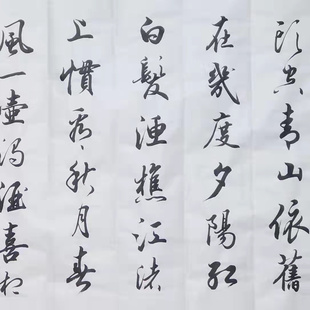 頭空青山依舊
在幾度夕陽紅
白髮漁樵江渚
上慣看秋月春
風一壺濁酒喜相